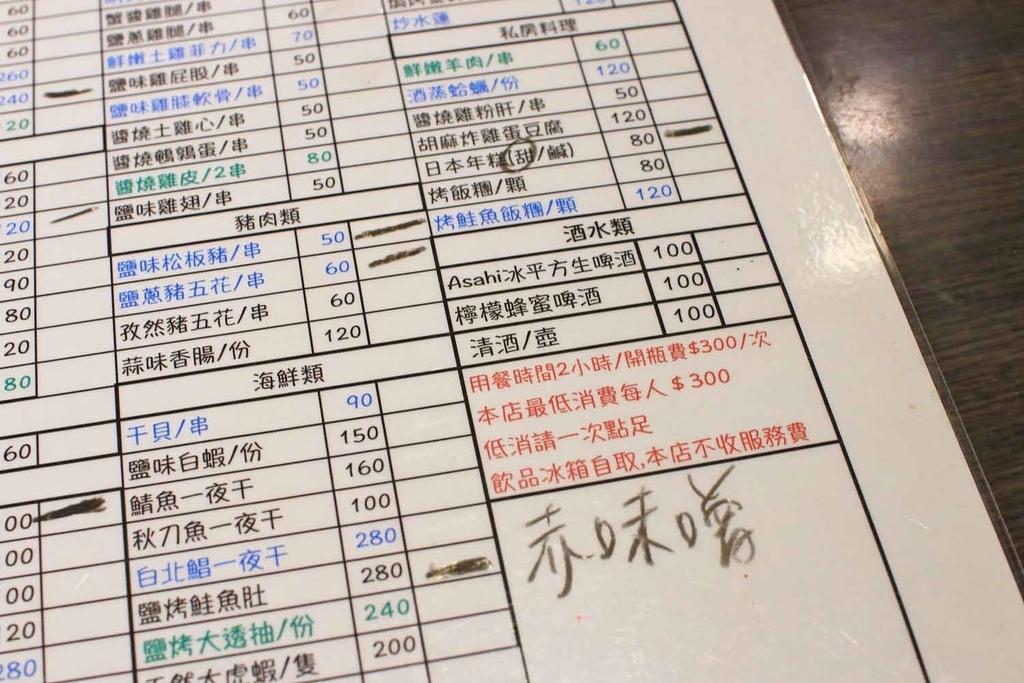 60
60
260
240
20
60
20
20
20
90
80
20
80
60
00
00
00
20
280
60
鹽蔥雞腿/串 60
鮮嫩土雞菲力/串 70
鹽味雞屁股/串 50
鹽味雞膝軟骨/串 50
醬燒土雞心/串 50
醬燒鵪鶉蛋/串 50
醬燒雞皮/2串 80
鹽味雞翅/串 50
豬肉類
鹽味松板豬/串 50
鹽蔥豬五花/串 60
孜然豬五花/串 60
蒜味香腸/份 120
海鮮類
干貝/串 90
鹽味白蝦/份 150
鯖魚一夜干 160
秋刀魚一夜干 100
白北鯧一夜干 280
鹽烤鮭魚肚 280
鹽烤大透抽/份 240
天然大虎蝦/隻 200
炒水蓮 120
私房料理
鮮嫩羊肉/串 60
酒蒸蛤蠣/份 120
醬燒雞粉肝/串 50
胡麻炸雞蛋豆腐 120
日本年糕(甜/鹹) 80
烤飯糰/顆 80
烤鮭魚飯糰/顆 120
酒水類
Asahi冰平方生啤酒 100
檸檬蜂蜜啤酒 100
清酒/壺 100
用餐時間2小時/開瓶費$300/次
本店最低消費每人$300
低消請一次點足
飲品冰箱自取,本店不收服務費
赤味噌